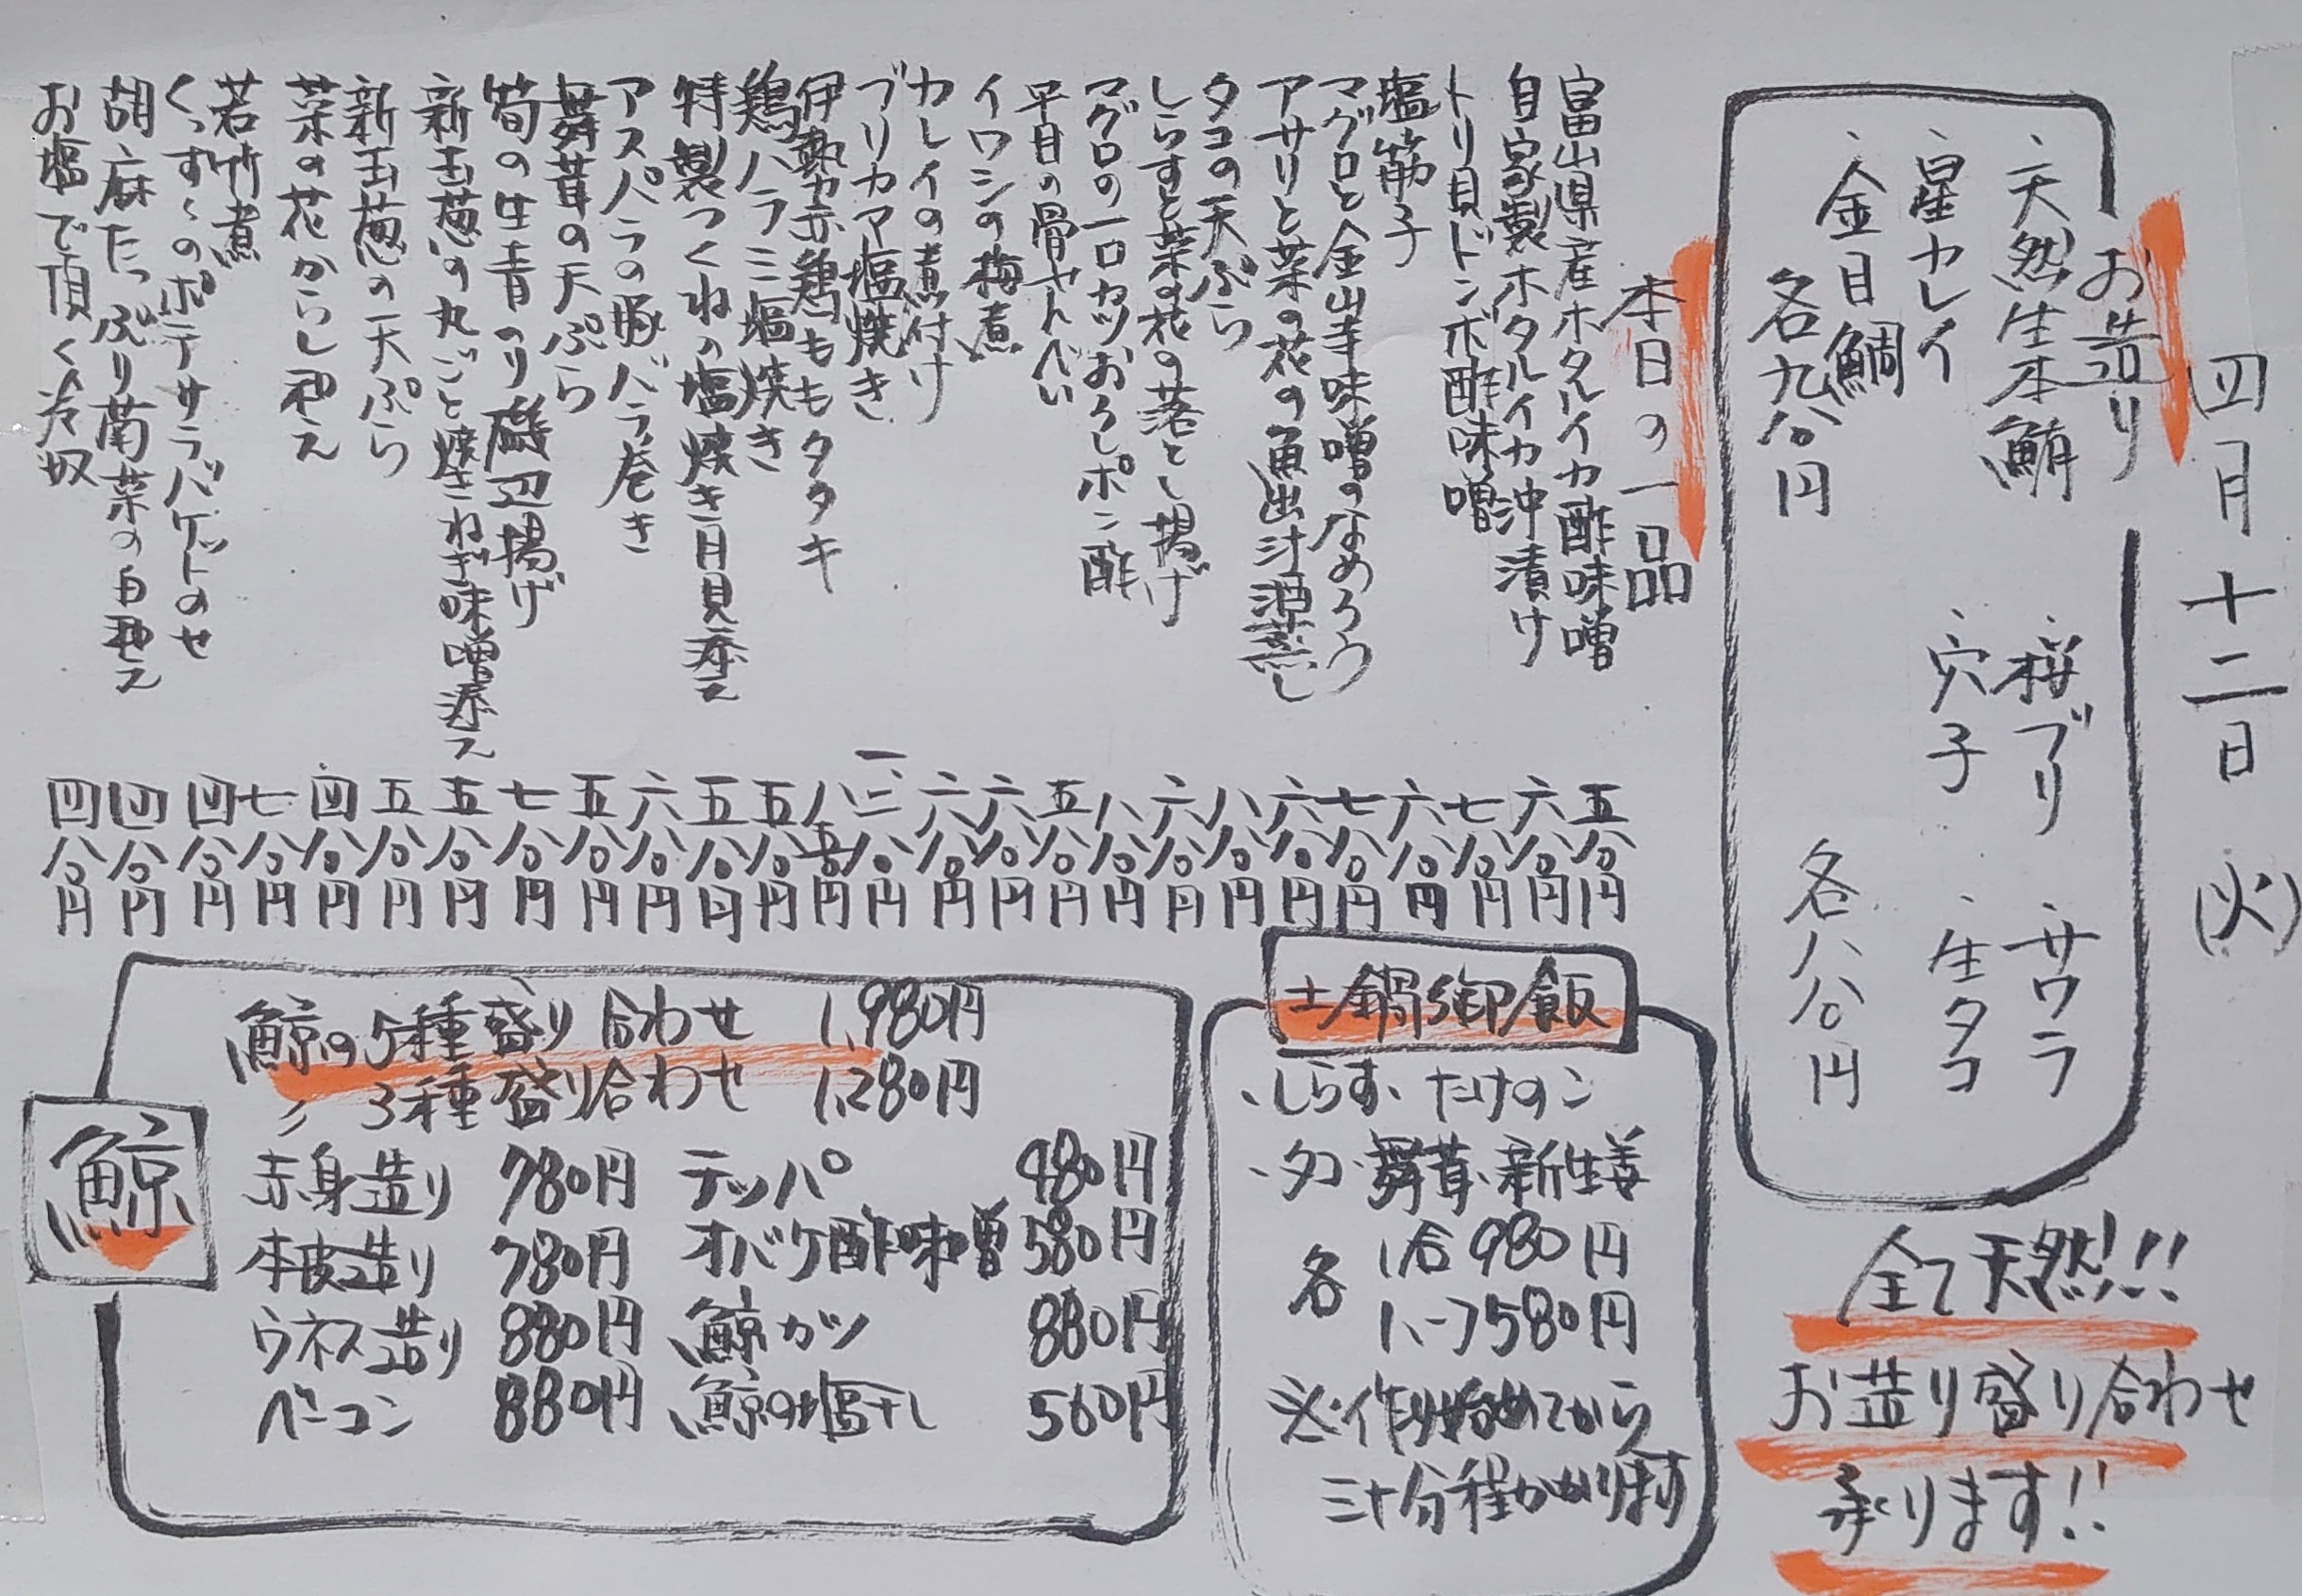 四月十二日(火)
お造り
・天然生本鮪
・桜ブリ
・サワラ
・星カレイ
・穴子
・生タコ
・金目鯛
各九八〇円
各八八〇円
全て天然!!!
お造り盛り合わせ
承ります!!
本日の一品
富山県産ホタルイカ酢味噌 五八〇円
自家製ホタルイカ沖漬け 六八〇円
トリ貝ドンボ酢味噌 七八〇円
塩筋子 六八〇円
マグロと金山寺味噌のなめろう 七八〇円
アサリと菜の花の魚出汁酒蒸し 六八〇円
タコの天ぷら 八八〇円
しらすと菜の花の落とし揚げ 六八〇円
マグロの一口カツおろしポン酢 八八〇円
平目の骨せんべい 五八〇円
イワシの梅煮 六八〇円
カレイの煮付け 六八〇円
ブリカマ塩焼き 一、三八〇円
伊勢赤鶏ももタタキ 八五〇円
鶏ハラミ塩焼き 五八〇円
特製つくねの塩焼き月見添え 五八〇円
アスパラの豚バラ巻き 六八〇円
舞茸の天ぷら 五八〇円
筍の生青のり磯辺揚げ 七八〇円
新玉葱の丸ごと焼きねぎ味噌添え 五八〇円
新玉葱の天ぷら 五八〇円
菜の花からし和え 四八〇円
若竹煮 七八〇円
くっすくのポテサラバケットのせ 四八〇円
胡麻たっぷり菊菜の白和え 四八〇円
お塩で頂く冷奴 四八〇円
土鍋御飯
・しらす・たけのこ
・タコ・舞茸・新生姜
各
1合 980円
1、ーフ580円
※作り始めてから
三十分程かかります
鯨
鯨の5種盛り合わせ 1,980円
〃 3種盛り合わせ 1,280円
赤身造り 780円 テッパ 980円
本皮造り 780円 オバケ酢味噌 580円
ウネス造り 880円 鯨カツ 880円
ベーコン 880円 鯨の塩干し 560円